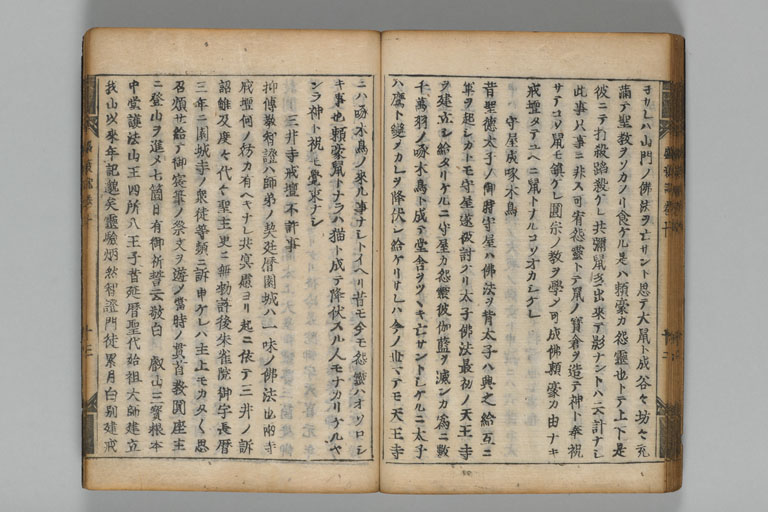 ヨサレハ山門ノ佛法ヲ亡サント思テ大鼠ト成谷々坊々充
満テ聖教ヲソカノリ食ケル是ハ頼豪カ怨霊也トテ上下是
彼ニテ打殺踏殺ケレ共彌鼠多出來テ影ナントハ云計ナシ
此事只事ニ非ス可宥怨靈トテ鼠ノ寳倉ヲ造テ神ト奉祝
サテコソ鼠モ鎮ケレ圓宗ノ教ヲ學シ可成佛頼豪カ由ナキ
戒壇タテユヘニ鼠トナルコソオカシケレ
守屋成啄木鳥
昔聖徳太子ノ御時守屋ハ佛法ヲ背太子ハ興之給互ニ
軍ヲ起シカトモ守屋遂被討ケリ太子佛法最初ノ天王寺
ヲ建立シ給タリケルニ守屋カ怨靈彼伽藍ヲ滅ンカ爲ニ數
千萬羽ノ啄木鳥ト成テ堂舎ヲツヽキ亡サントシケルニ太子
ハ鷹ト變ノカレヲ降伏シ給ケリサレハ今ノ世マテモ天王寺
ニハ啄木鳥ノ來ル事ナシトイヘリ昔モ今モ怨靈ハオソロシ
キ事也頼豪鼠トナラハ猫ト成テ降伏スル人モナカリケルヤ
ラン神ト祝モ覺束ナシ
三井寺戒壇不許事
抑傳教智證ハ師弟ノ契延暦園城ハ一味ノ佛法也両寺
戒壇何ノ妨カ有ヘキナレ共冥慮ヨリ起ニ依テ三井ノ訴
詔雖及度々代々聖主更ニ無勅許後朱雀院御宇長暦
三年ニ園城寺ノ衆徒等頻ニ訴申ケレハ主上モカタク思
召煩せ給テ御宸筆ノ祭文ヲ遊ノ當時ノ貫首教圓座主
ニ登山ヲ進メ七箇日有御祈誓云敬白 叡山三寳根本
中堂護法山王四所八王子昔延暦聖代始祖大師建立
我山以來年記邈矣靈驗炳然智證門徒累月白剔建戒